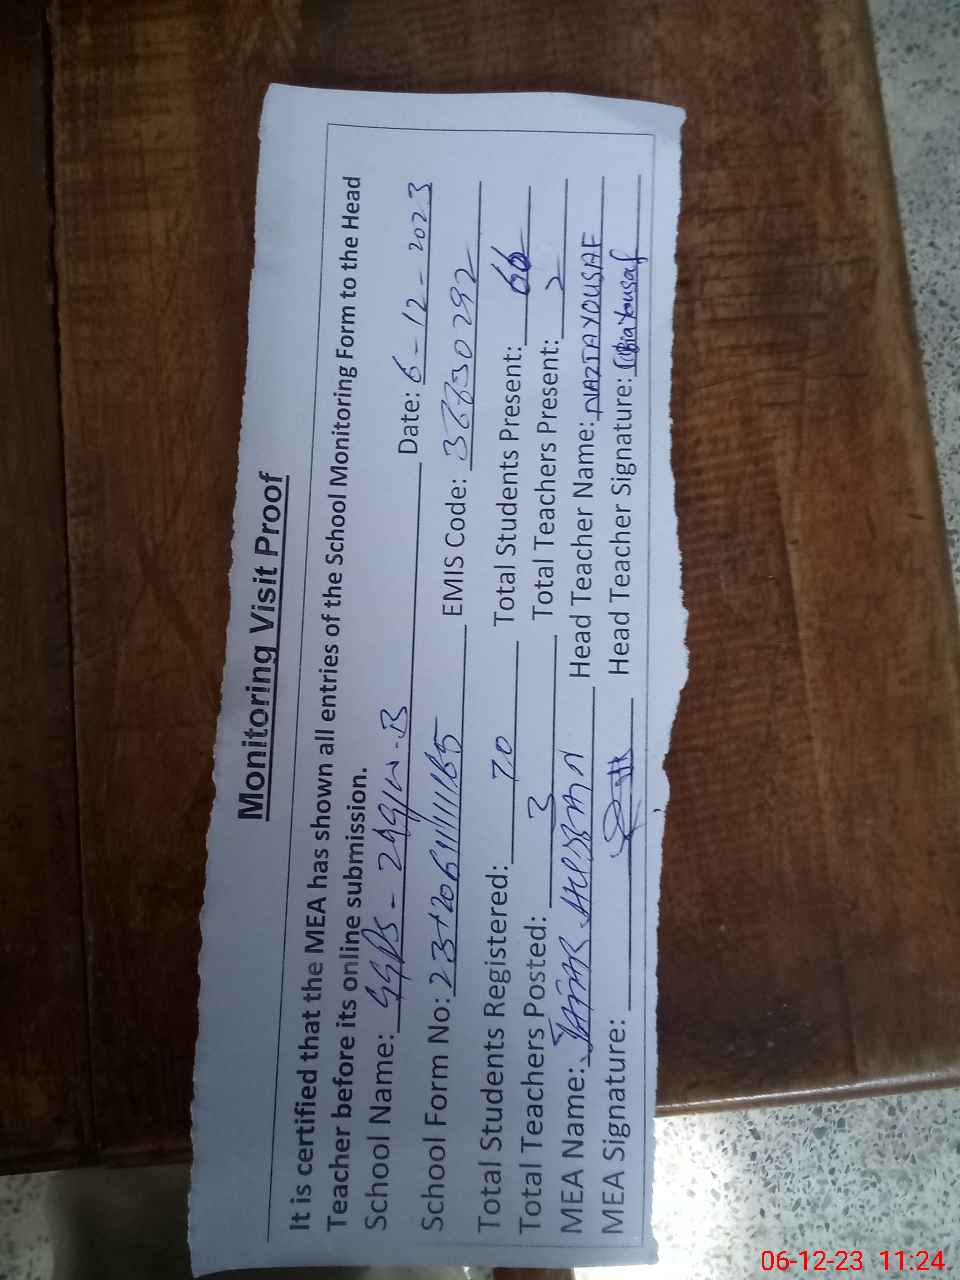 Monitoring Visit Proof
It is certified that the MEA has shown all entries of the School Monitoring Form to the Head
Teacher before its online submission.
School Name: GGPS - 299/W.B Date: 6-12-2023
School Form No: EMIS Code: 36630292
Total Students Registered: 70 Total Students Present: 66
Total Teachers Posted: 3 Total Teachers Present: 2
MEA Name: Head Teacher Name: NAZIA YOUSAF
MEA Signature: Head Teacher Signature: Yousaf
06-12-23 11:24